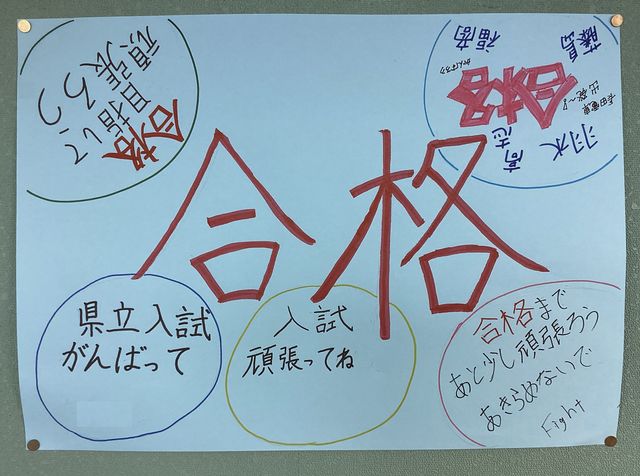 合格
目指して
頑張ろう
藤島
福高
がんばろう
合格
羽水
高志
合格
県立入試
がんばって
入試
頑張ってね
合格まで
あと少し頑張ろう
あきらめないで
Fight